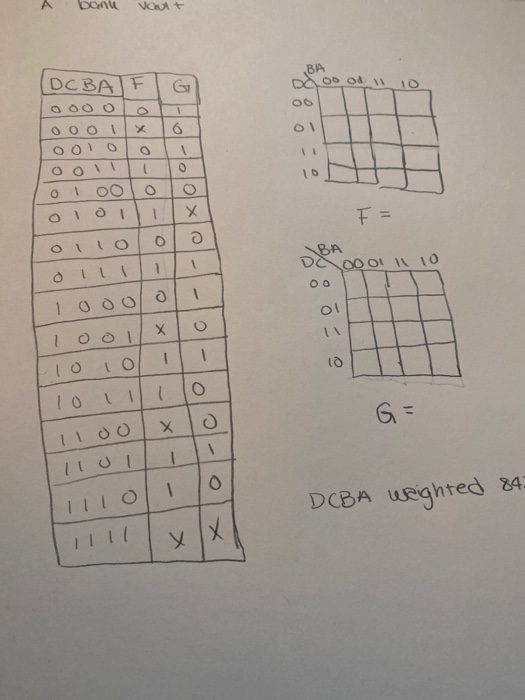 A bank vault
DCBA F G
0000 0 1
0001 X 0
0010 0 1
0011 1 0
0100 0 0
0101 1 X
0110 0 0
0111 1 1
1000 0 1
1001 X 0
1010 1 1
1011 1 0
1100 X 0
1101 1 1
1110 1 0
1111 X X
BA
DC 00 01 11 10
00
01
11
10
F =
BA
DC 00 01 11 10
00
01
11
10
G =
DCBA weighted 84